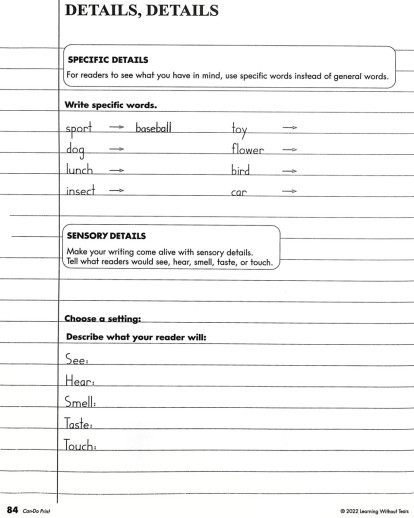 DETAILS, DETAILS
SPECIFIC DETAILS
For readers to see what you have in mind, use specific words instead of general words.
Write specific words.
sport → baseball toy →
dog → flower →
lunch → bird →
insect → car →
SENSORY DETAILS
Make your writing come alive with sensory details.
Tell what readers would see, hear, smell, taste, or touch.
Choose a setting:
Describe what your reader will:
See:
Hear:
Smell:
Taste:
Touch:
84 Can-Do Print © 2022 Learning Without Tears